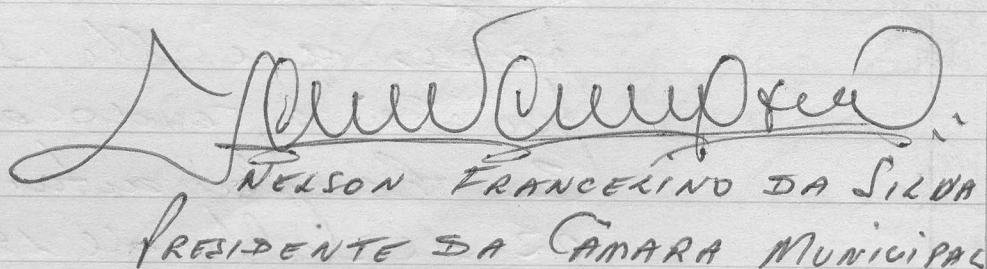 NELSON FRANCELINO DA SILVA
PRESIDENTE DA CÂMARA MUNICIPAL